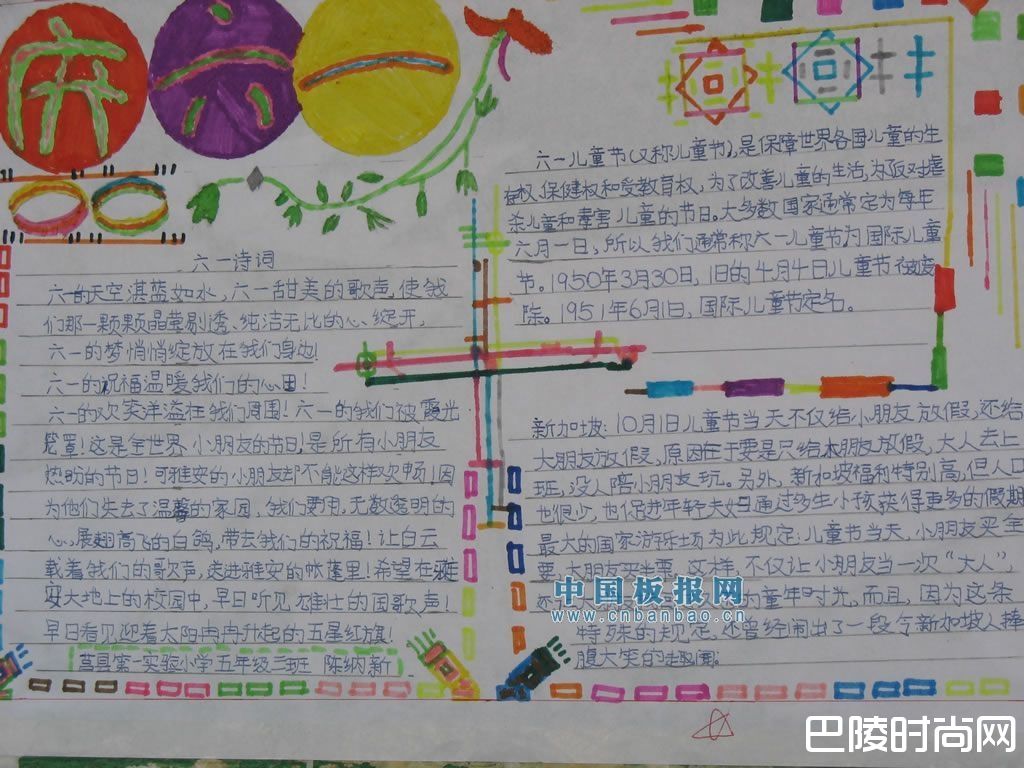 庆六一
六一诗词
六一的天空湛蓝如水,六一甜美的歌声,使我
们那一颗颗晶莹剔透、纯洁无比的心绽开,
六一的梦悄悄绽放在我们身边!
六一的祝福温暖我们的心田!
六一的欢笑洋溢在我们周围!六一的我们被霞光
笼罩!这是全世界小朋友的节日!是所有小朋友
热盼的节日!可雅安的小朋友却不能这样欢畅!因
为他们失去了温馨的家园,我们要用,无数透明的
心、展翅高飞的白鸽,带去我们的祝福!让白云
载着我们的歌声,走进雅安的帐蓬里!希望在雅
安大地上的校园中,早日听见雄壮的国歌声!
早日看见迎着太阳冉冉升起的五星红旗!
莒县第一实验小学五年级三班 陈纳新
六一儿童节(又称儿童节),是保障世界各国儿童的生
存权、保健权和受教育权,为了改善儿童的生活,为反对虐
杀儿童和毒害儿童的节日。大多数国家通常定为每年
六月一日,所以我们通常称六一儿童节为国际儿童
节。1950年3月30日,旧的4月4日儿童节被废
除。1951年6月1日,国际儿童节定名。
新加坡:10月1日儿童节当天不仅给小朋友放假,还给
大朋友放假,原因在于要是只给小朋友放假,大人去上
班,没人陪小朋友玩。另外,新加坡福利特别高,但人口
也很少,也促进年轻夫妇通过多生小孩获得更多的假期
最大的国家游乐场为此规定:儿童节当天,小朋友买全
票,大朋友买半票,这样,不仅让小朋友当一次“大人”,
还 的童年时光,而且,因为这条
特殊的规定,还曾经闹出了一段令新加坡人捧
腹大笑的趣闻:
中国板报网
www.cnbanbao.cn
巴陵时尚网